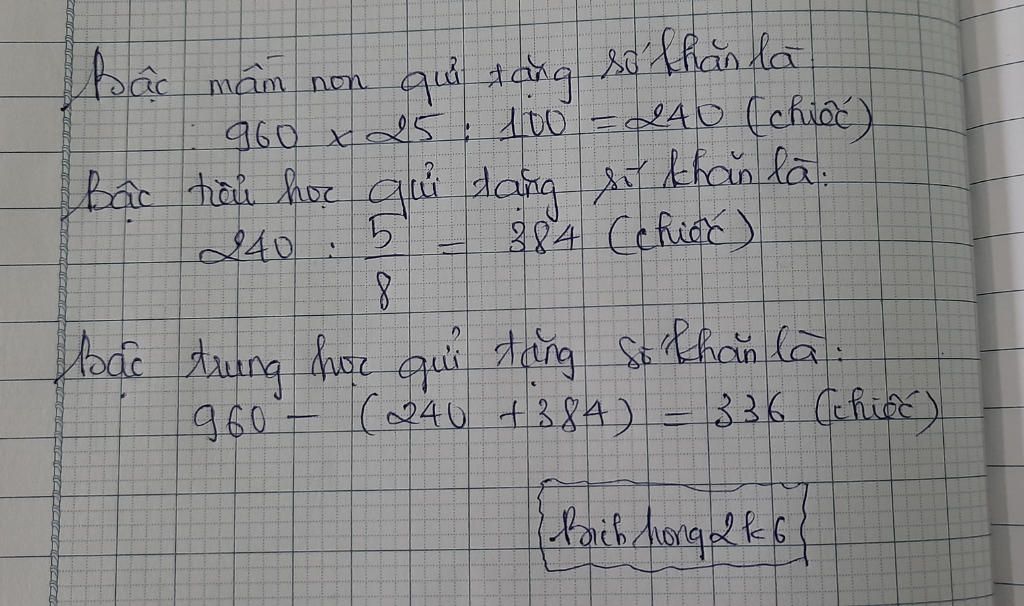 Bậc mầm non gửi tặng số khăn là
960 x 25 : 100 = 240 (chiếc)
Bậc tiểu học gửi tặng số khăn là:
240 : 5/8 = 384 (chiếc)
Bậc trung học gửi tặng số khăn là:
960 - (240 + 384) = 336 (chiếc)
Bich hong 2k6